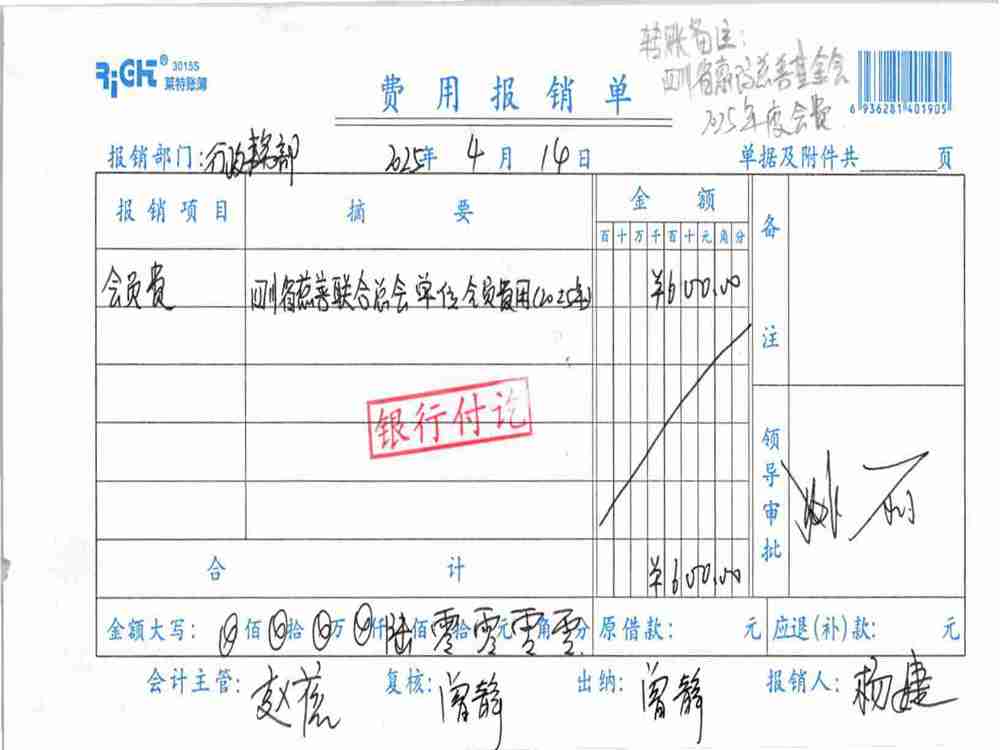 RiGHT® 3015S
莱特账簿
转账备注:
四川省慈善基金会
2025年度会费
费用报销单
6 936281 401905
报销部门: 行政部 2025年 4月 14日 单据及附件共 页
报销项目 摘要 金额 备注
百十万千百十元角分
会员费 四川省慈善联合总会单位会员费用(2025年) ¥600.00
银行付讫
领导审批
合计 ¥600.00
金额大写: ⊗佰⊗拾⊗万⊗仟陆佰零拾零元零角零分 原借款: 元 应退(补)款: 元
会计主管: 赵 复核: 曾静 出纳: 曾静 报销人: 杨建